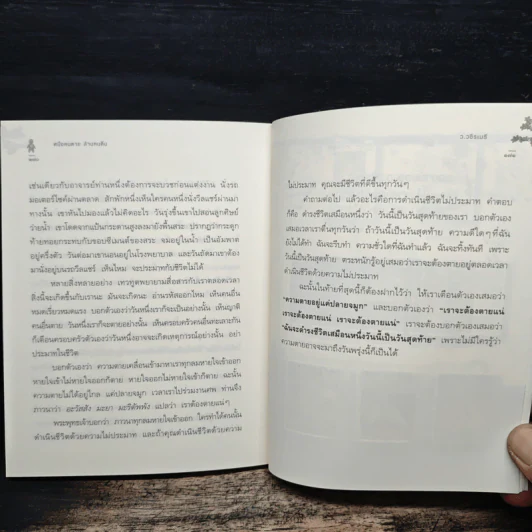 สบตากับความตาย
เช่นเดียวกับอาจารย์ท่านหนึ่งต้องการจะบวชก่อนแต่งงาน นั่งรถ
มอเตอร์ไซค์ผ่านตลาด สักพักหนึ่งเห็นใครคนหนึ่งนั่งวีลแชร์ผ่านมา
ทางนั้น เขาหันไปมองแล้วไม่คิดอะไร วันรุ่งขึ้นเขาไปสอนลูกศิษย์
ว่ายน้ำ เขาโดดจากแป้นกระดานสูงลงมายังพื้นสระ ปรากฏว่ากระดูก
ท้ายทอยกระแทกกับขอบซีเมนต์ของสระ จมอยู่ในน้ำ เป็นอัมพาต
อยู่ครึ่งตัว วันต่อมาเขานอนอยู่ในโรงพยาบาล และวันถัดมาเขาต้อง
มานั่งอยู่บนรถวีลแชร์ เห็นไหม จะประมาทกับชีวิตไม่ได้
หลายสิ่งหลายอย่าง เทวทูตพยายามสื่อสารกับเราตลอดเวลา
สิ่งนี้จะเกิดขึ้นกับเรานะ มันจะเกิดนะ อ่านรหัสออกไหม เห็นคนอื่น
หมดเรี่ยวหมดแรง บอกตัวเองว่าวันหนึ่งเราก็จะเป็นอย่างนั้น เห็นญาติ
คนอื่นตาย วันหนึ่งเราก็จะตายอย่างนั้น เห็นครอบครัวคนอื่นทะเลาะกัน
ก็เตือนครอบครัวตัวเองว่าวันหนึ่งอาจจะเกิดเหตุการณ์อย่างนั้น อย่า
ประมาทในชีวิต
บอกตัวเองว่า ความตายเคลื่อนเข้ามาหาเราทุกลมหายใจเข้าออก
หายใจเข้าไม่หายใจออกก็ตาย หายใจออกไม่หายใจเข้าก็ตาย ฉะนั้น
ความตายไม่ได้อยู่ไกล แค่ปลายจมูก เวลาเราไปร่วมงานศพ ท่านจึง
ภาวนาว่า อะวัสสัง มะยา มะริตัพพัง แปลว่า เราต้องตายแน่ๆ
พระพุทธเจ้าบอกว่า ภาวนาทุกลมหายใจเข้าออก ใครทำได้คนนั้น
ดำเนินชีวิตด้วยความไม่ประมาท และถ้าคุณดำเนินชีวิตด้วยความ
ว.วชิรเมธี
ไม่ประมาท คุณจะมีชีวิตที่ดีขึ้นทุกวันๆ
คำถามต่อไป แล้วอะไรคือการดำเนินชีวิตไม่ประมาท คำตอบ
ก็คือ ดำรงชีวิตเสมือนหนึ่งว่า วันนี้เป็นวันสุดท้ายของเรา บอกตัวเอง
เสมอเวลาเราตื่นทุกวันว่า ถ้าวันนี้เป็นวันสุดท้าย ความดีใดๆ ที่ฉัน
ยังไม่ได้ทำ ฉันจะรีบทำ ความชั่วใดที่ฉันทำแล้ว ฉันจะทิ้งทันที เพราะ
วันนี้เป็นวันสุดท้าย ตระหนักรู้อยู่เสมอว่าเราจะต้องตายอยู่ตลอดเวลา
ดำเนินชีวิตด้วยความไม่ประมาท
ฉะนั้นในท้ายที่สุดนี้ก็ต้องฝากไว้ว่า ให้เราเตือนตัวเองเสมอว่า
"ความตายอยู่แค่ปลายจมูก" และบอกตัวเองว่า "เราจะต้องตายแน่
เราจะต้องตายแน่ เราจะต้องตายแน่" เราจะต้องบอกตัวเองเสมอว่า
"ฉันจะดำรงชีวิตเสมือนหนึ่งวันนี้เป็นวันสุดท้าย" เพราะไม่มีใครรู้ว่า
ความตายอาจจะมาถึงวันพรุ่งนี้ก็เป็นได้